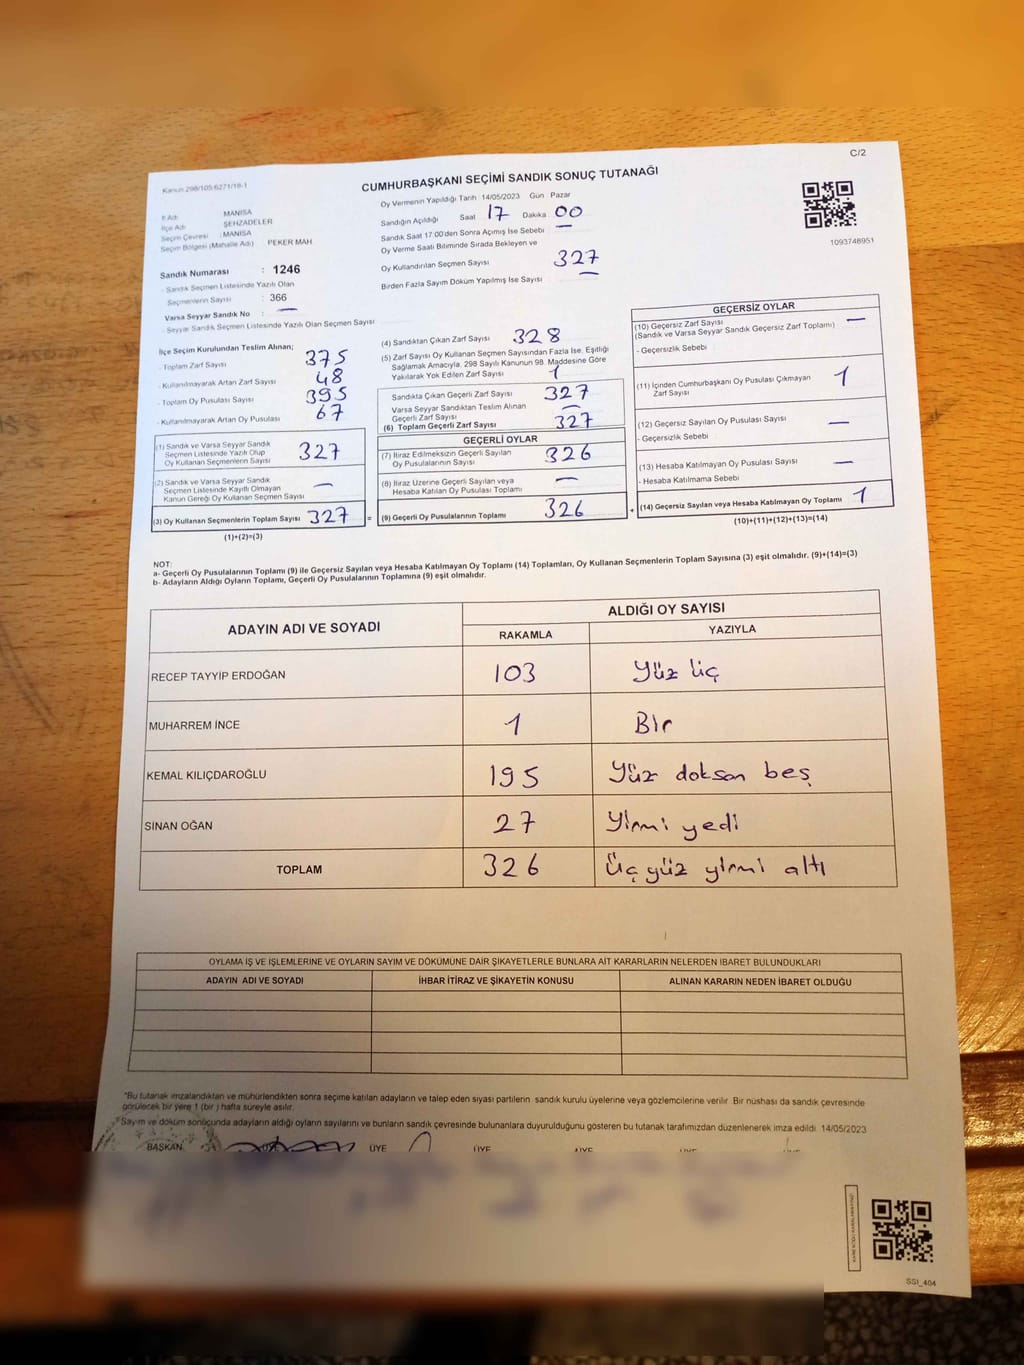 C/2
Kanun:298/105.6271/18-1
CUMHURBAŞKANI SEÇİMİ SANDIK SONUÇ TUTANAĞI
1093748951
İl Adı MANİSA
İlçe Adı ŞEHZADELER
Seçim Çevresi : MANİSA
Seçim Bölgesi (Mahalle Adı) PEKER MAH
Sandık Numarası : 1246
- Sandık Seçmen Listesinde Yazılı Olan
Seçmenlerin Sayısı : 366
Varsa Seyyar Sandık No : —
- Seyyar Sandık Seçmen Listesinde Yazılı Olan Seçmen Sayısı
Oy Vermenin Yapıldığı Tarih 14/05/2023 Gün Pazar
Sandığın Açıldığı Saat 17 Dakika 00
Sandık Saat 17:00'den Sonra Açımış İse Sebebi —
Oy Verme Saati Bitiminde Sırada Bekleyen ve
Oy Kullandırılan Seçmen Sayısı 327
Birden Fazla Sayım Döküm Yapılmış İse Sayısı —
İlçe Seçim Kurulundan Teslim Alınan;
- Toplam Zarf Sayısı 375
- Kullanılmayarak Artan Zarf Sayısı 48
- Toplam Oy Pusulası Sayısı 395
- Kullanılmayarak Artan Oy Pusulası 67
(1) Sandık ve Varsa Seyyar Sandık
Seçmen Listesinde Yazılı Olup
Oy Kullanan Seçmenlerin Sayısı 327
(2) Sandık ve Varsa Seyyar Sandık
Seçmen Listesinde Kayıtlı Olmayan
Kanun Gereği Oy Kullanan Seçmen Sayısı —
(3) Oy Kullanan Seçmenlerin Toplam Sayısı 327 =
(1)+(2)=(3)
(4) Sandıktan Çıkan Zarf Sayısı 328
(5) Zarf Sayısı Oy Kullanan Seçmen Sayısından Fazla İse, Eşitliği
Sağlamak Amacıyla, 298 Sayılı Kanunun 98. Maddesine Göre
Yakılarak Yok Edilen Zarf Sayısı 1
Sandıkta Çıkan Geçerli Zarf Sayısı 327
Varsa Seyyar Sandıktan Teslim Alınan
Geçerli Zarf Sayısı —
(6) Toplam Geçerli Zarf Sayısı 327
GEÇERLİ OYLAR
(7) İtiraz Edilmeksizin Geçerli Sayılan
Oy Pusulalarının Sayısı 326
(8) İtiraz Üzerine Geçerli Sayılan veya
Hesaba Katılan Oy Pusulası Toplamı —
(9) Geçerli Oy Pusulalarının Toplamı 326 +
GEÇERSİZ OYLAR
(10) Geçersiz Zarf Sayısı —
(Sandık ve Varsa Seyyar Sandık Geçersiz Zarf Toplamı)
- Geçersizlik Sebebi
(11) İçinden Cumhurbaşkanı Oy Pusulası Çıkmayan
Zarf Sayısı 1
(12) Geçersiz Sayılan Oy Pusulası Sayısı —
- Geçersizlik Sebebi
(13) Hesaba Katılmayan Oy Pusulası Sayısı —
- Hesaba Katılmama Sebebi
(14) Geçersiz Sayılan veya Hesaba Katılmayan Oy Toplamı 1
(10)+(11)+(12)+(13)=(14)
NOT:
a- Geçerli Oy Pusulalarının Toplamı (9) ile Geçersiz Sayılan veya Hesaba Katılmayan Oy Toplamı (14) Toplamları, Oy Kullanan Seçmenlerin Toplam Sayısına (3) eşit olmalıdır. (9)+(14)=(3)
b- Adayların Aldığı Oyların Toplamı, Geçerli Oy Pusulalarının Toplamına (9) eşit olmalıdır.
ADAYIN ADI VE SOYADI
ALDIĞI OY SAYISI
RAKAMLA YAZIYLA
RECEP TAYYİP ERDOĞAN 103 Yüz üç
MUHARREM İNCE 1 Bir
KEMAL KILIÇDAROĞLU 195 Yüz doksan beş
SİNAN OĞAN 27 Yirmi yedi
TOPLAM 326 Üç yüz yirmi altı
OYLAMA İŞ VE İŞLEMLERİNE VE OYLARIN SAYIM VE DÖKÜMÜNE DAİR ŞİKAYETLERLE BUNLARA AİT KARARLARIN NELERDEN İBARET BULUNDUKLARI
ADAYIN ADI VE SOYADI İHBAR İTİRAZ VE ŞİKAYETİN KONUSU ALINAN KARARIN NEDEN İBARET OLDUĞU
*Bu tutanak imzalandıktan ve mühürlendikten sonra seçime katılan adayların ve talep eden siyasi partilerin sandık kurulu üyelerine veya gözlemcilerine verilir. Bir nüshası da sandık çevresinde
görülecek bir yere 1 (bir) hafta süreyle asılır.
*Sayım ve döküm sonucunda adayların aldığı oyların sayılarını ve bunların sandık çevresinde bulunanlara duyurulduğunu gösteren bu tutanak tarafımızdan düzenlenerek imza edildi. 14/05/2023
BAŞKAN ÜYE ÜYE ÜYE ÜYE
SSI_404